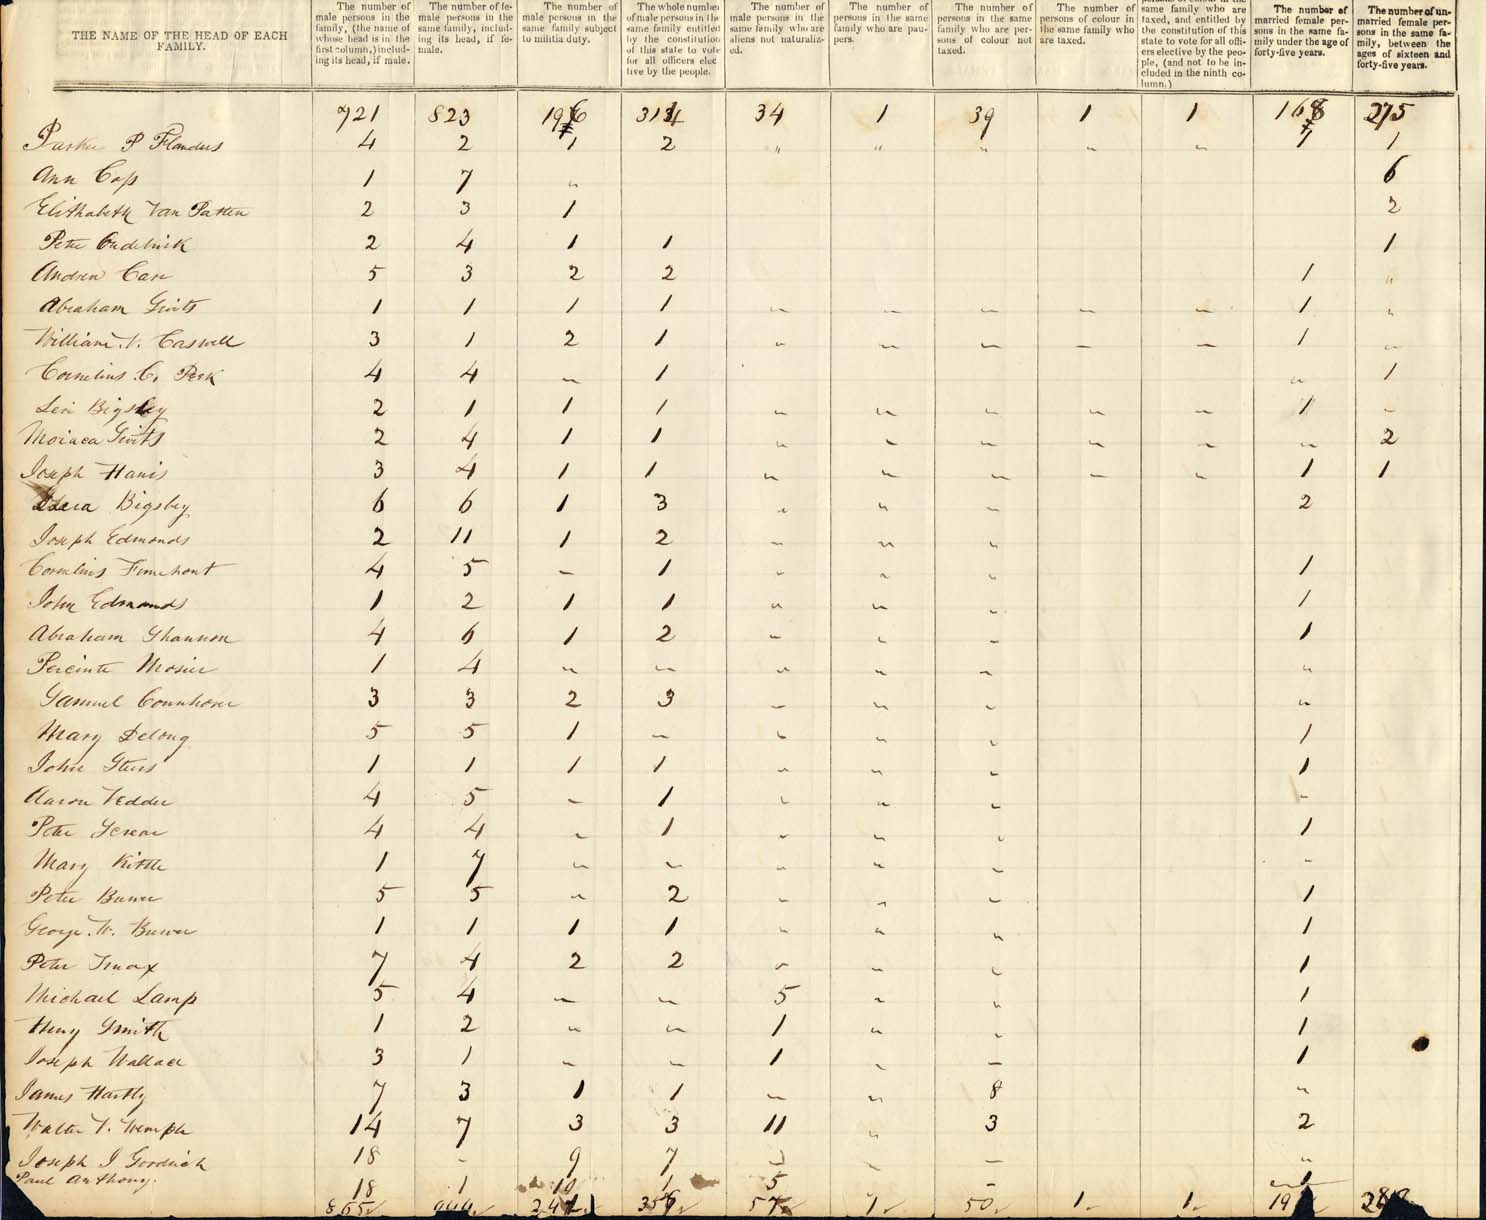 THE NAME OF THE HEAD OF EACH FAMILY.
The number of male persons in the family, (the name of whose head is in the first column,) including its head, if male.
The number of female persons in the same family, including its head, if female.
The number of male persons in the same family subject to militia duty.
The whole number of male persons in the same family entitled by the constitution of this state to vote for all officers elective by the people.
male persons in the same family who are aliens not naturalized.
persons in the same family who are paupers.
persons in the same family who are persons of colour not taxed.
The number of persons of colour in the same family who are taxed.
same family who are taxed, and entitled by the constitution of this state to vote for all officers elective by the people, (and not to be included in the ninth column.)
The number of married female persons in the same family under the age of forty-five years.
The number of unmarried female persons in the same family, between the ages of sixteen and forty-five years.
721 823 34 1 39 1 1 275
Parker P Flanders 4 2 1 2 " " " " " 1 1
Ann 1 7 " 6
Elithabeth Van Patten 2 3 1 2
Peter 2 4 1 1 1
Andrew Case 5 3 2 2 1 "
Abraham 1 1 1 1 " " " " " 1 "
William V. Caswell 3 1 2 1 " " " " " 1 "
Cornelius C. Peek 4 4 " 1 " 1
Levi Bigsley 2 1 1 1 " " " " " 1 "
2 4 1 1 " " " " " " 2
Joseph Harris 3 4 1 1 " " " " " 1 1
Bigsby 6 6 1 3 " " " 2
Joseph Edmonds 2 11 1 2 " " "
Cornelius 4 5 " 1 " " " 1
John Edmonds 1 2 1 1 " " " 1
Abraham Shannon 4 6 1 2 " " " 1
Mosier 1 4 " " " " " "
Samuel 3 3 2 3 " " " "
Mary Delong 5 5 1 " " " " 1
John Steers 1 1 1 1 " " " 1
Aaron Vedder 4 5 " 1 " " " "
Peter 4 4 " 1 " " " 1
Mary Kittle 1 7 " " " " " "
Peter 5 5 " 2 " " " 1
George W. 1 1 1 1 " " " 1
Peter Truax 7 4 2 2 " " " 1
Michael Lamp 5 4 " " 5 " " 1
Henry Smith 1 2 " " 1 " " 1
Joseph Wallace 3 1 " " 1 " " 1
James Hartly 7 3 1 1 " " 8 "
Walter V. Wemple 14 7 3 3 11 " 3 2
Joseph I Goodrich 18 " 9 7 " " " "
Paul Anthony. 18 1 10 1 5 "
865 50 1 1